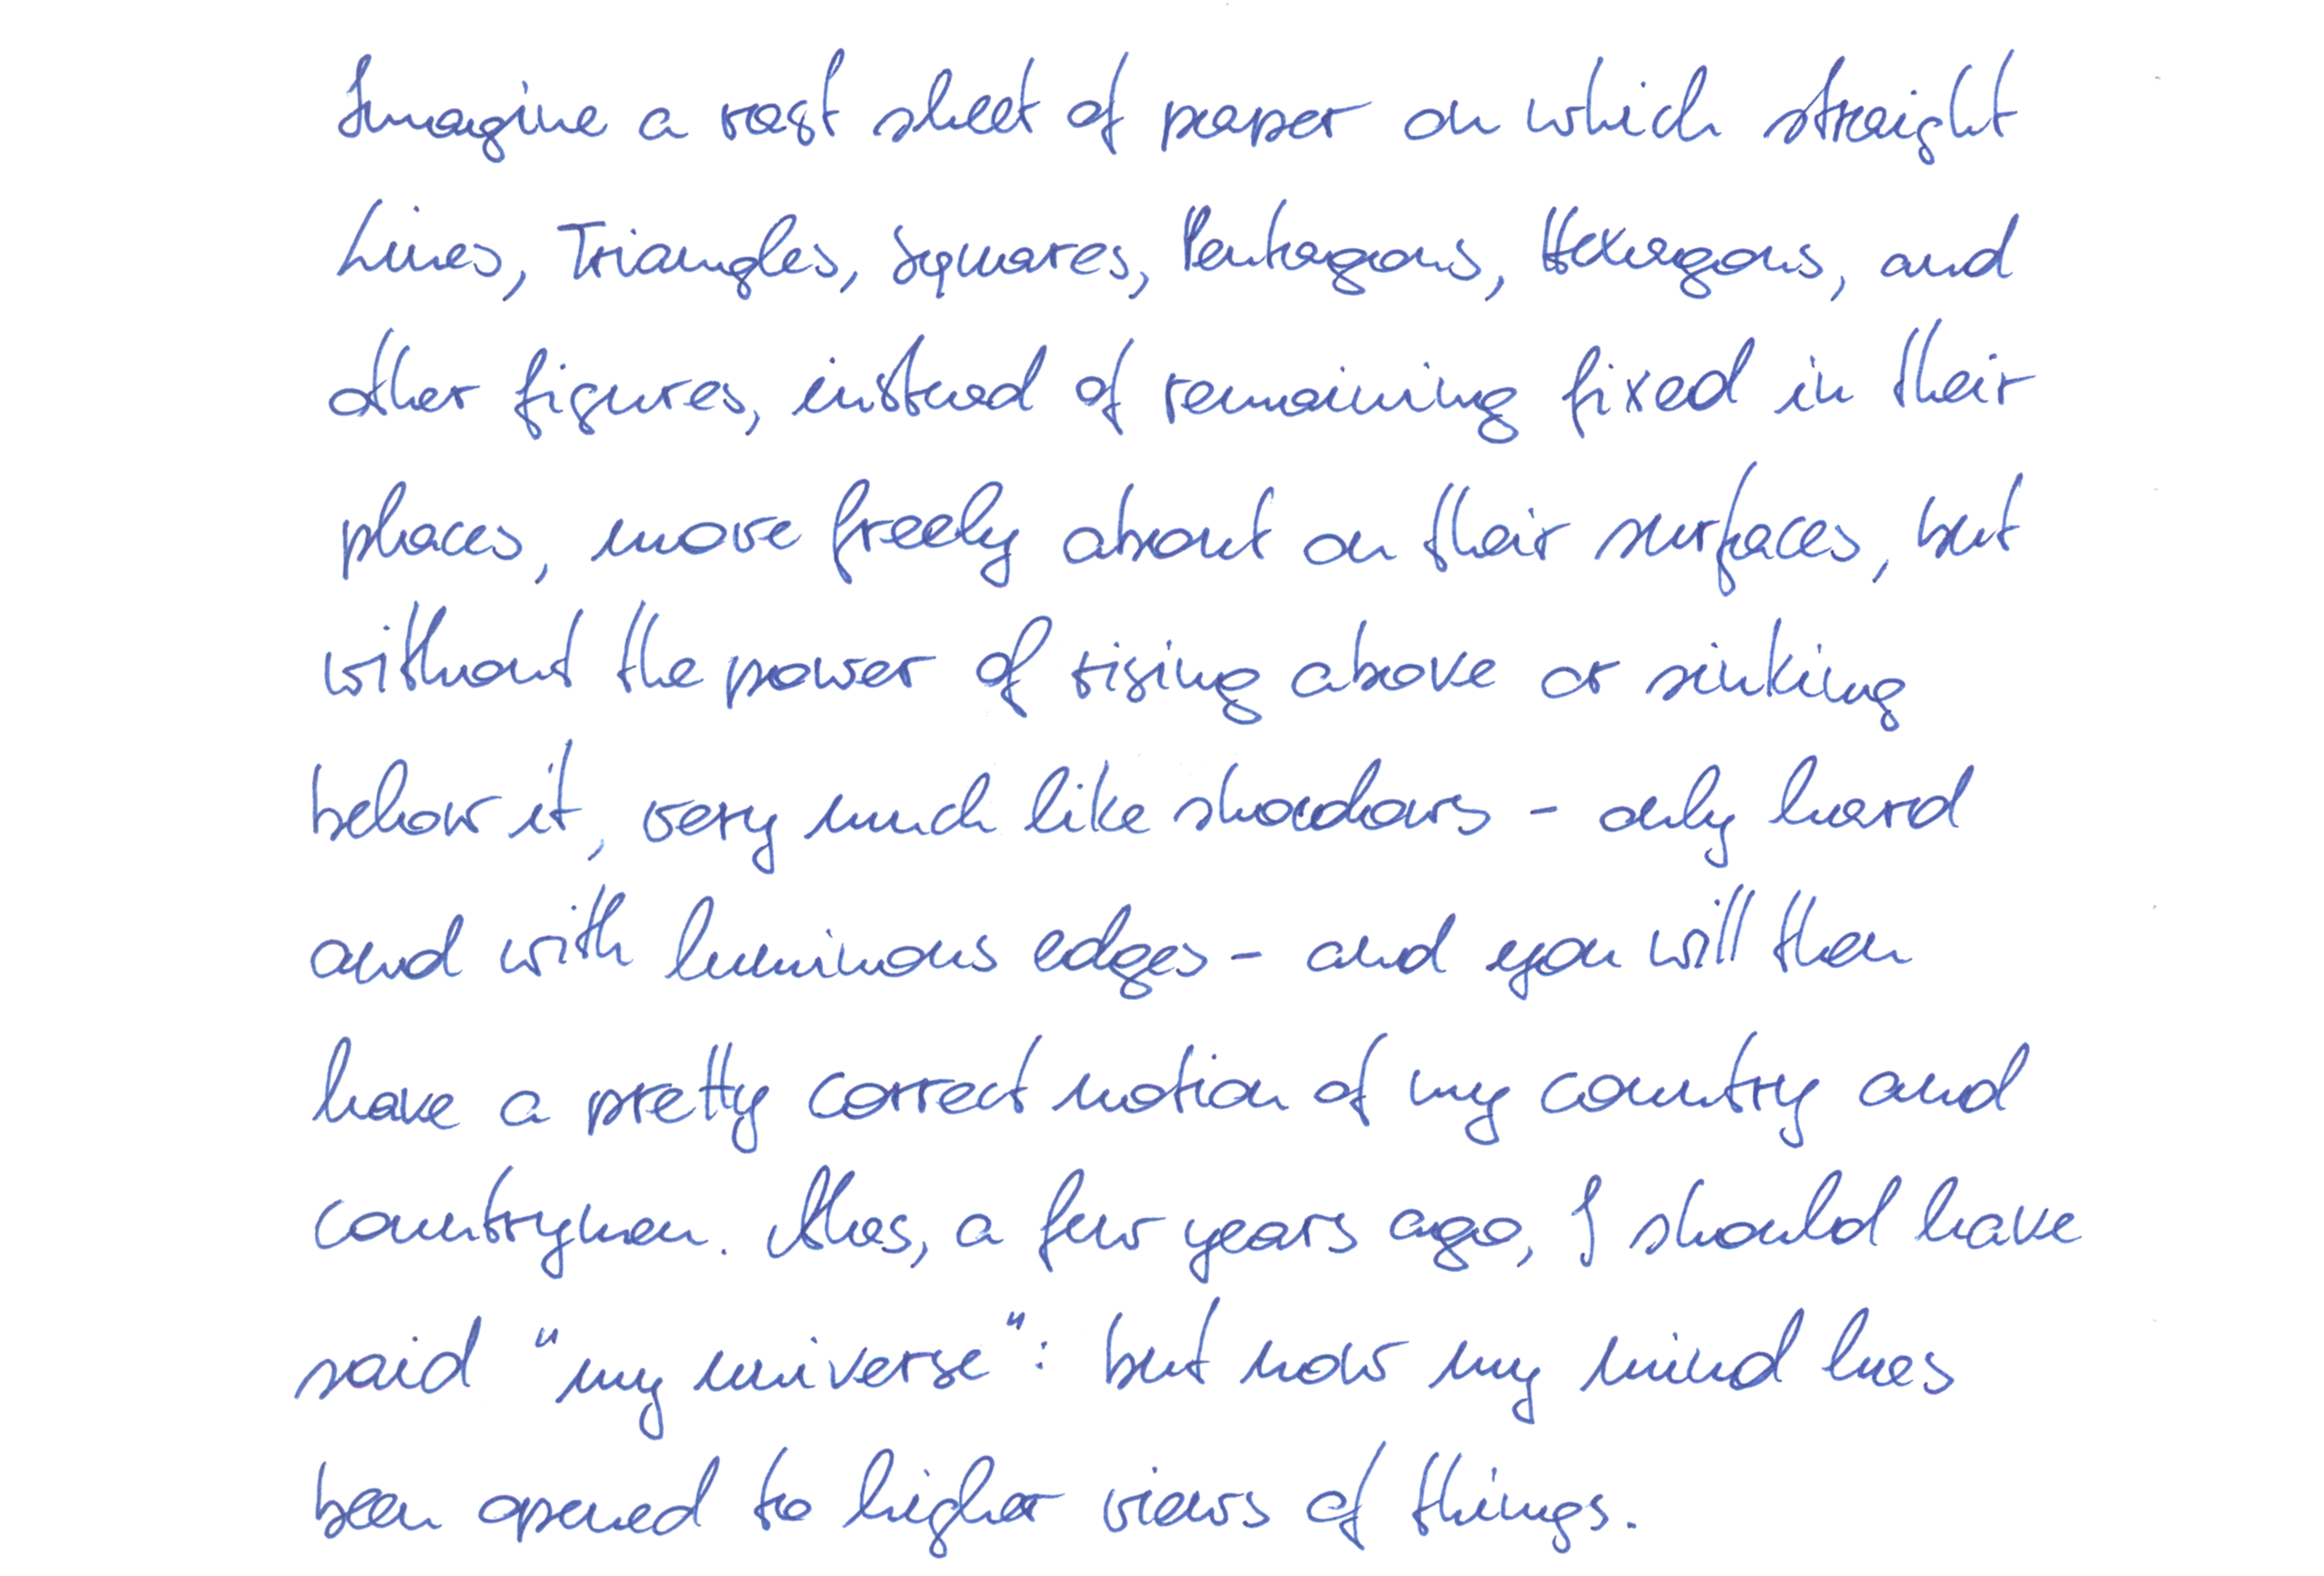 Imagine a vast sheet of paper on which straight
Lines, Triangles, Squares, Pentagons, Hexagons, and
other figures, instead of remaining fixed in their
places, move freely about on their surfaces, but
without the power of rising above or sinking
below it, very much like shadows - only hard
and with luminous edges - and you will then
have a pretty correct notion of my country and
countrymen. Alas, a few years ago, I should have
said "my universe": but now my mind has
been opened to higher views of things.